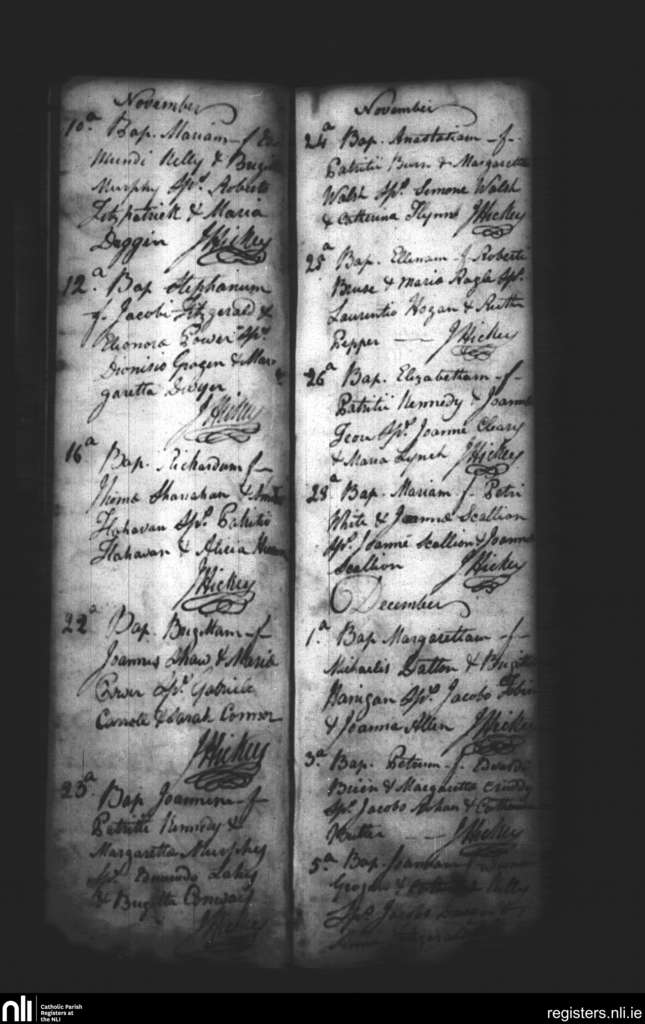 November
10.a Bap. Mariam f
mundi Kelly &
Murphy Sp.s Roberto
Fitzpatrick & Maria
Duggin J Hickey
12.a Bap Stephanum
f. Jacobi Fitzgerald &
Eleonora Power Sp.s
Dionisio Grogen & Mar
garetta Dwyer
J Hickey
16a
Bap. Richardum f
Thoma Shanahan &
Flahavan Sp.s Patritio
Flahavan & Alicia
J Hickey
22a Bap. Brigittam f
Joannes Shaw & Maria
Power Sp.s Gabriele
& Sarah Connor
J Hickey
23.a
Bap Joannem f
Patritii Kennedy &
Margaretta Murphy
Sp.s Edmundo
& Brigitta
J Hickey
November
24a Bap. Anastatiam f
Patritii Burn & Margaretta
Walsh Sp.s Simone Walsh
& Catherina Flynn J Hickey
25a Bap. Ellenam f. Roberti
Bruse & Maria Sp.s
Laurentio Hogan & Ruth
Pepper J Hickey
26a Bap. Elizabetham f
Patritii Kennedy & Joanna
Sp.s Joanne Cleary
& Maria Lynch J Hickey
28.a Bap. Mariam f. Petri
White & Joanna Scallion
Sp.s Joanne Scallion & Joanna
Scallion J Hickey
December
1.a Bap Margarettam f
Michaelis Dalton & Brigitta
Sp.s Jacobo Tobin
& Joanna Allen J Hickey
3.a Bap. Petrum f.
Brien & Margaretta
Sp.s Jacobo &
J Hickey
5a Bap. f
Grogan & Kelly
Sp.s Jacobo
nli
Catholic Parish
Registers at
the NLI
registers.nli.ie